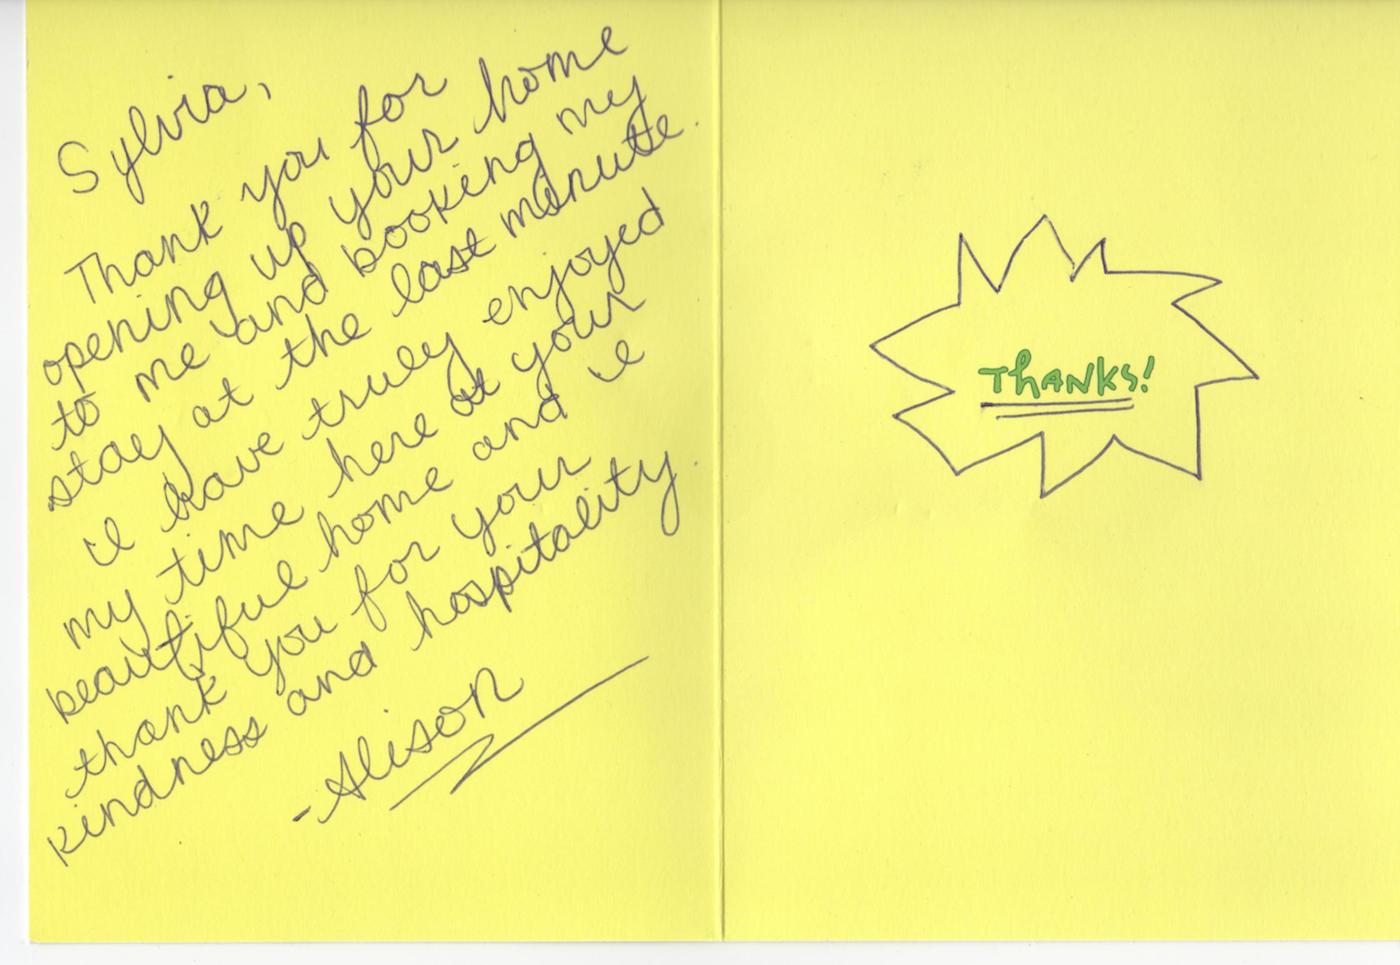 Sylvia,
Thank you for
opening up your home
to me and booking my
stay at the last minute.
I have truly enjoyed
my time here at your
beautiful home and I
thank you for your
kindness and hospitality.
-Alison
THANKS!